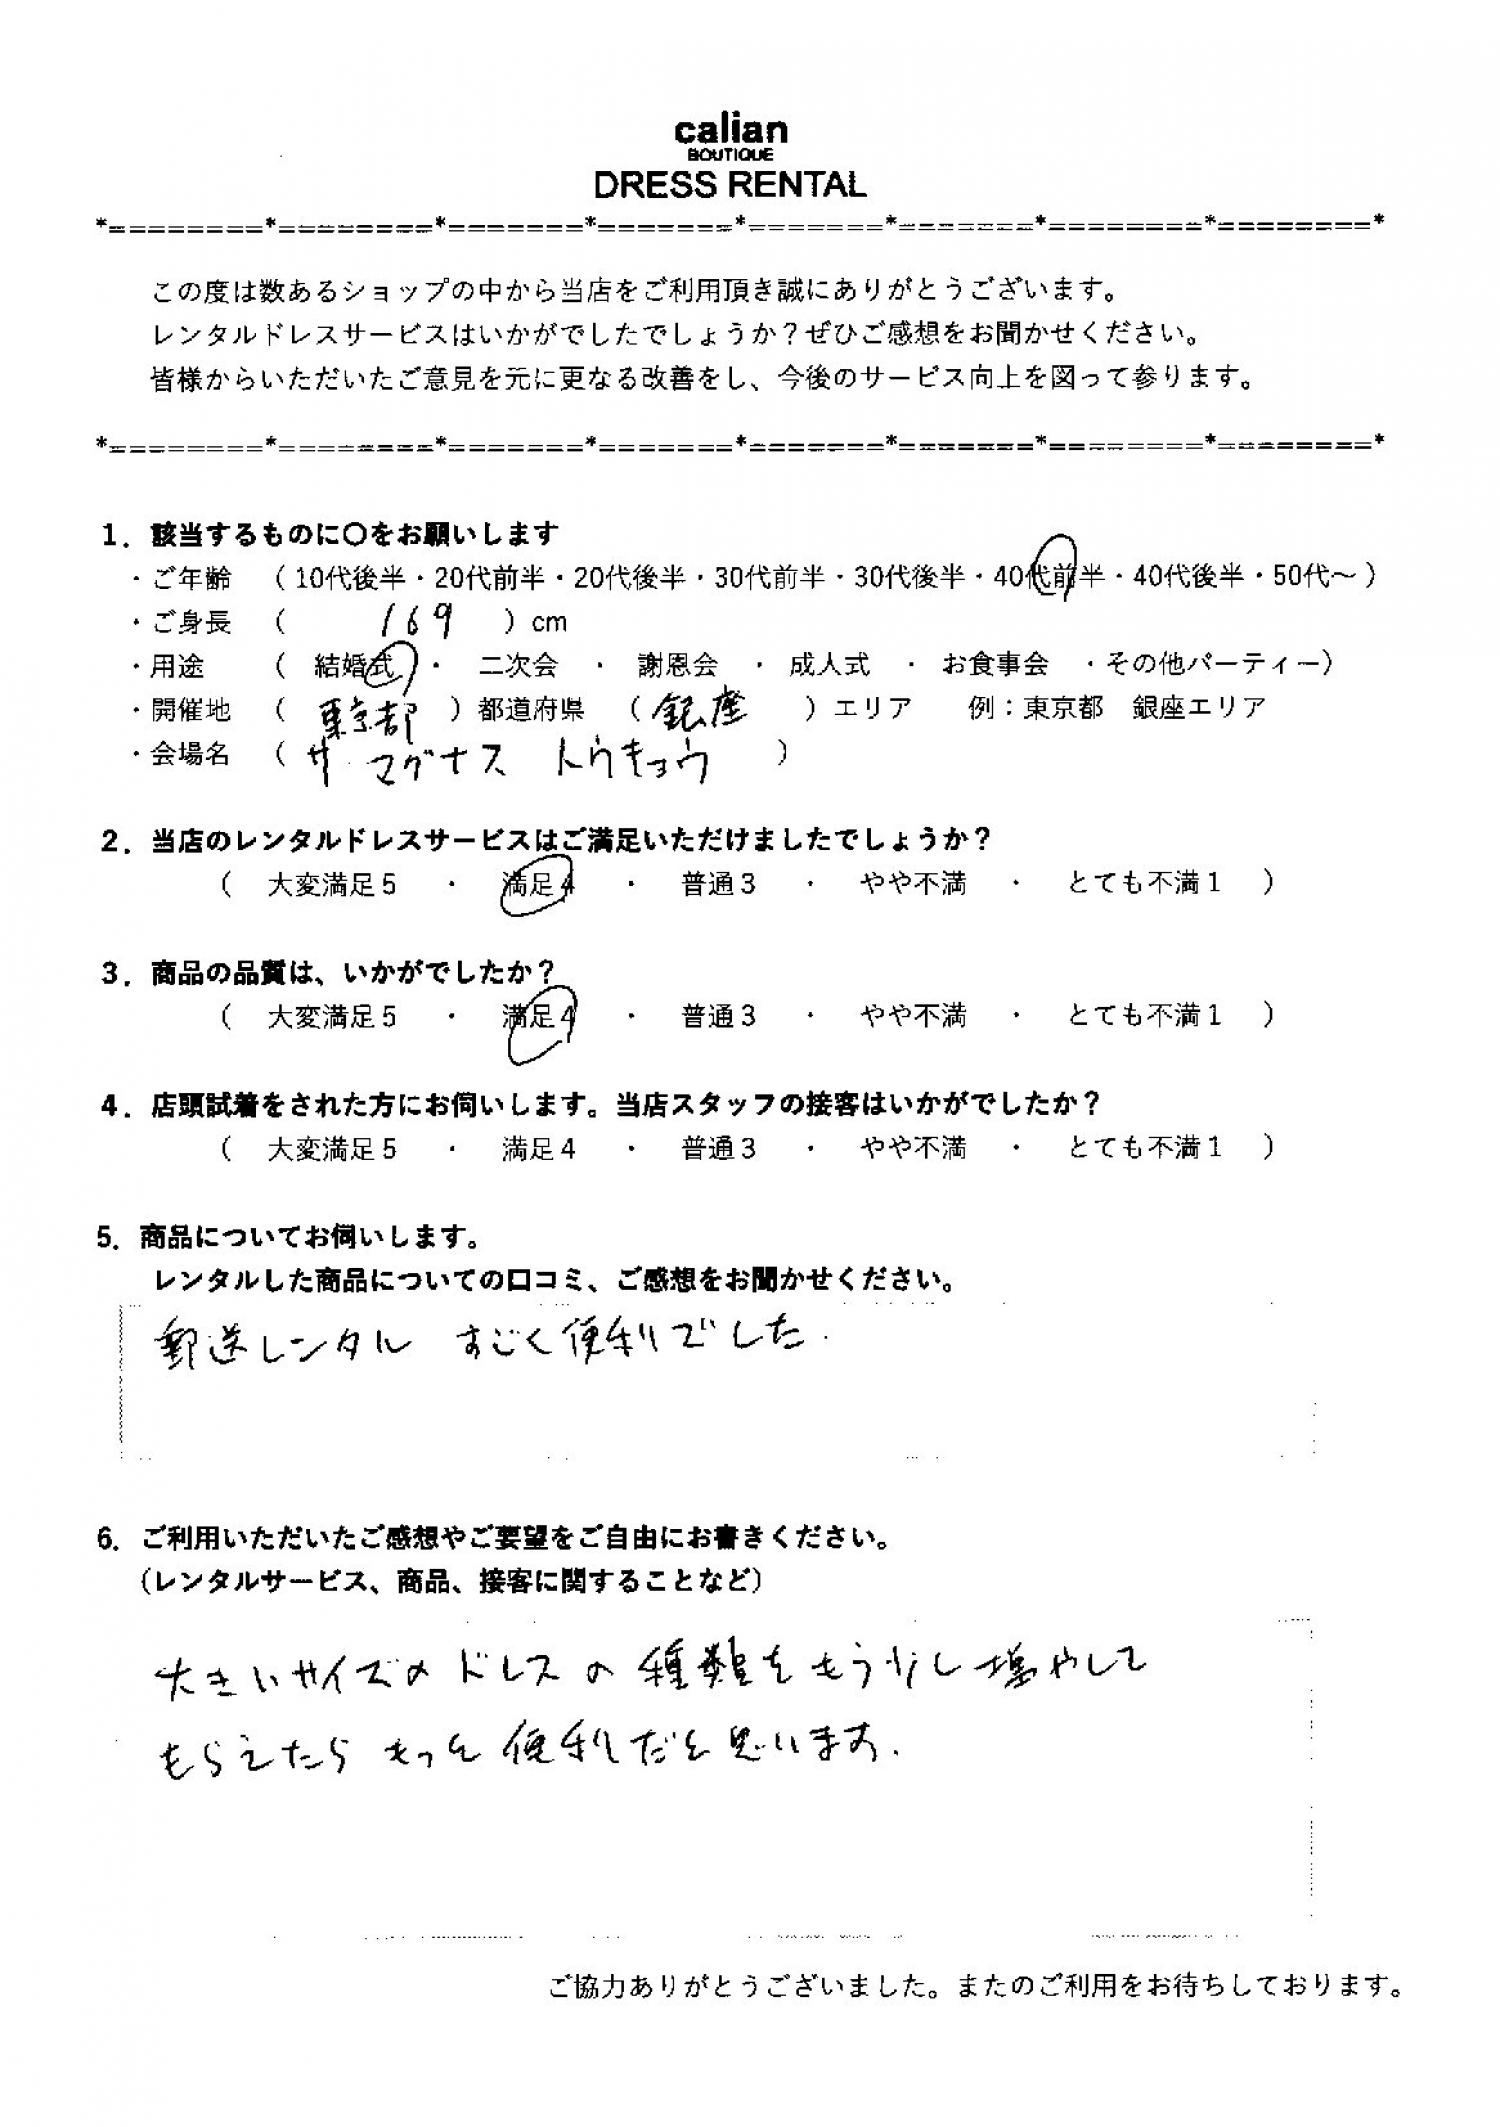 calian
BOUTIQUE
DRESS RENTAL
*========*========*=======*=======*=======*=======*========*========*
この度は数あるショップの中から当店をご利用頂き誠にありがとうございます。
レンタルドレスサービスはいかがでしたでしょうか？ぜひご感想をお聞かせください。
皆様からいただいたご意見を元に更なる改善をし、今後のサービス向上を図って参ります。
*========*========*=======*=======*=======*=======*========*========*
1．該当するものに〇をお願いします
・ご年齢　（10代後半・20代前半・20代後半・30代前半・30代後半・40代前半・40代後半・50代～）
・ご身長　（　169　）cm
・用途　（　結婚式　・　二次会　・　謝恩会　・　成人式　・　お食事会　・その他パーティー）
・開催地　（　東京都　）都道府県　（　銀座　）エリア　例：東京都　銀座エリア
・会場名　（　ザ マグナス トウキョウ　）
2．当店のレンタルドレスサービスはご満足いただけましたでしょうか？
（　大変満足5　・　満足4　・　普通3　・　やや不満　・　とても不満1　）
3．商品の品質は、いかがでしたか？
（　大変満足5　・　満足4　・　普通3　・　やや不満　・　とても不満1　）
4．店頭試着をされた方にお伺いします。当店スタッフの接客はいかがでしたか？
（　大変満足5　・　満足4　・　普通3　・　やや不満　・　とても不満1　）
5．商品についてお伺いします。
レンタルした商品についての口コミ、ご感想をお聞かせください。
郵送レンタル すごく便利でした.
6．ご利用いただいたご感想やご要望をご自由にお書きください。
（レンタルサービス、商品、接客に関することなど）
大きいサイズのドレスの種類をもう少し増やして
もらえたら もっと便利だと思います.
ご協力ありがとうございました。またのご利用をお待ちしております。